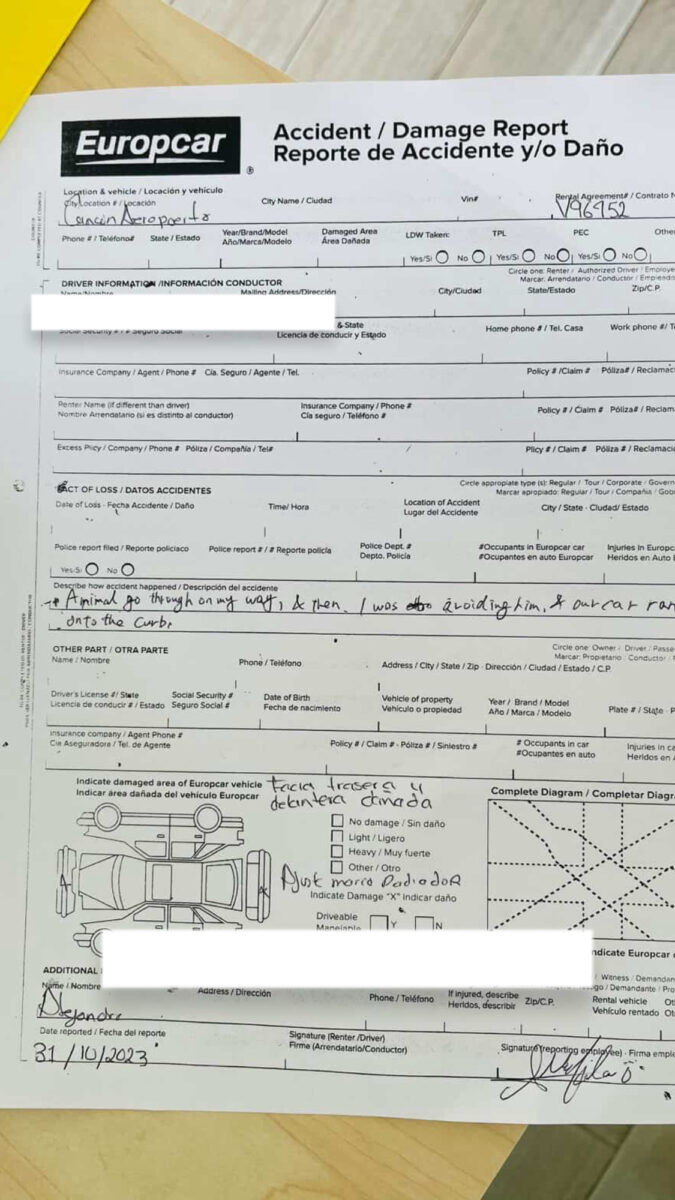 Europcar ®
Accident / Damage Report
Reporte de Accidente y/o Daño
Location & vehicle / Locación y vehículo
City/Location # / Locación
City Name / Ciudad
Vin#
Rental Agreement# / Contrato N
Cancún Aeropuerto
V96952
Phone # / Teléfono#
State / Estado
Year/Brand/Model
Año/Marca/Modelo
Damaged Area
Área Dañada
LDW Taken:
TPL
PEC
Other
Yes/Si No
Yes/Si No
Yes/Si No
Circle one: Renter / Authorized Driver / Employe
Marcar: Arrendatario / Conductor / Emplead
DRIVER INFORMATION /INFORMACIÓN CONDUCTOR
Name/Nombre
Mailing Address/Dirección
City/Ciudad
State/Estado
Zip/C.P.
Social Security # / # Seguro Social
& State
Licencia de conducir y Estado
Home phone # / Tel. Casa
Work phone #/ T
Insurance Company / Agent / Phone # Cía. Seguro / Agente / Tel.
Policy # /Claim # Póliza# / Reclamac
Renter Name (if different than driver)
Nombre Arrendatario (si es distinto al conductor)
Insurance Company / Phone #
Cía seguro / Teléfono #
Policy # / Claim # Póliza# / Reclam
Excess Plicy / Company / Phone # Póliza / Compañía / Tel#
Plicy # / Claim # Póliza # / Reclamació
FACT OF LOSS / DATOS ACCIDENTES
Circle appropiate type (s): Regular / Tour / Corporate / Govern
Marcar apropiado: Regular / Tour / Compañia / Gob
Date of Loss - Fecha Accidente / Daño
Time/ Hora
Location of Accident
Lugar del Accidente
City / State - Ciudad/ Estado
Police report filed / Reporte policiaco
Police report # / # Reporte policía
Police Dept. #
Depto. Policía
#Occupants in Europcar car
#Ocupantes en auto Europcar
Injuries in Europc
Heridos en Auto E
Yes/Si No
Describe how accident happened / Descripción del accidente
Animal go through on my way, & then. I was avoiding him, & our car ran
onto the curb.
OTHER PART / OTRA PARTE
Circle one: Owner / Driver / Passe
Marcar: Propietario / Conductor /
Name / Nombre
Phone / Teléfono
Address / City / State / Zip - Dirección / Ciudad / Estado / C.P.
Driver's License #/ State
Licencia de conducir # / Estado
Social Security #
Seguro Social #
Date of Birth
Fecha de nacimiento
Vehicle of property
Vehículo o propiedad
Year / Brand / Model
Año / Marca / Modelo
Plate # / State - P
Insurance company / Agent Phone #
Cía Aseguradora / Tel. de Agente
Policy # / Claim # - Póliza # / Siniestro #
# Occupants in car
#Ocupantes en auto
Injuries in ca
Heridos en A
Indicate damaged area of Europcar vehicle
Indicar área dañada del vehículo Europcar
Facia trasera y
delantera dañada
Complete Diagram / Completar Diagra
No damage / Sin daño
Light / Ligero
Heavy / Muy fuerte
Other / Otro
Ajust marco Radiador
Indicate Damage "X" Indicar daño
Driveable
Manejable
Y N
ndicate Europcar
ADDITIONAL
Witness / Demandan
go / Demandante / Pro
Name / Nombre
Address / Dirección
Phone / Teléfono
If injured, describe
Heridos, describir
Zip/C.P.
Rental vehicle
Vehículo rentado
Alejandro
Date reported / Fecha del reporte
Signature (Renter /Driver)
Firma (Arrendatario/Conductor)
Signature (reporting employee) - Firma emple
31/10/2023